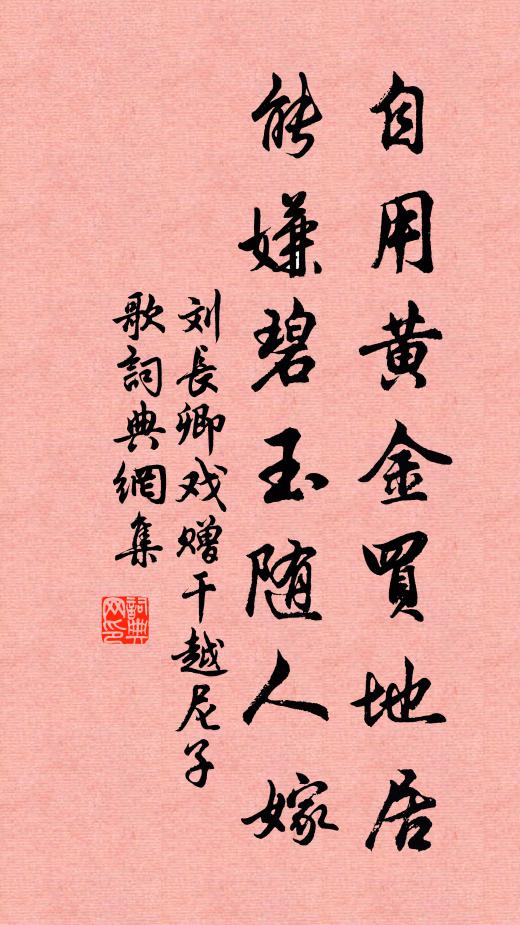 自用黄金買地居
能嫌碧玉随人嫁
刘長卿戏赠干越尼子
歌詞典網集
詞典网印